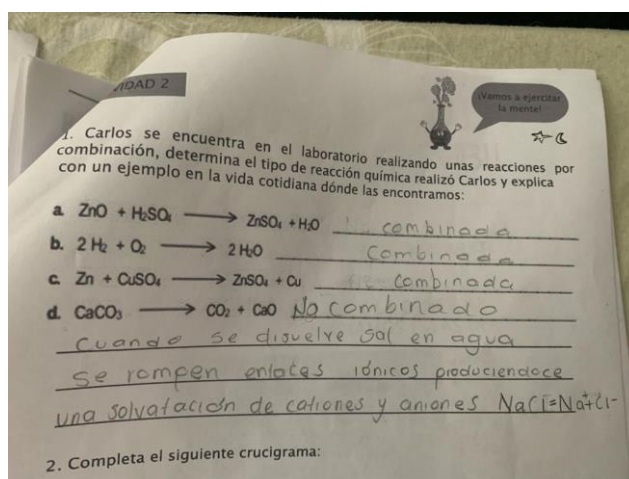 IDAD 2
¡Vamos a ejercitar
la mente!
1. Carlos se encuentra en el laboratorio realizando unas reacciones por
combinación, determina el tipo de reacción química realizó Carlos y explica
con un ejemplo en la vida cotidiana dónde las encontramos:
a. ZnO + H₂SO₄ ⟶ ZnSO₄ + H₂O combinada
b. 2 H₂ + O₂ ⟶ 2 H₂O Combinada
c. Zn + CuSO₄ ⟶ ZnSO₄ + Cu Combinada
d. CaCO₃ ⟶ CO₂ + CaO No combinado
Cuando se disuelve Sal en agua
se rompen enlaces iónicos produciendoce
una solvatación de cationes y aniones NaCl=Na⁺+Cl-
2. Completa el siguiente crucigrama: